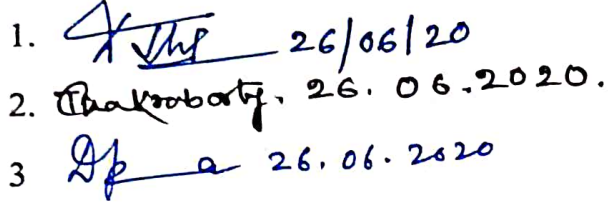 1. 26/06/20
2. Chakraborty. 26.06.2020.
3 26.06.2020